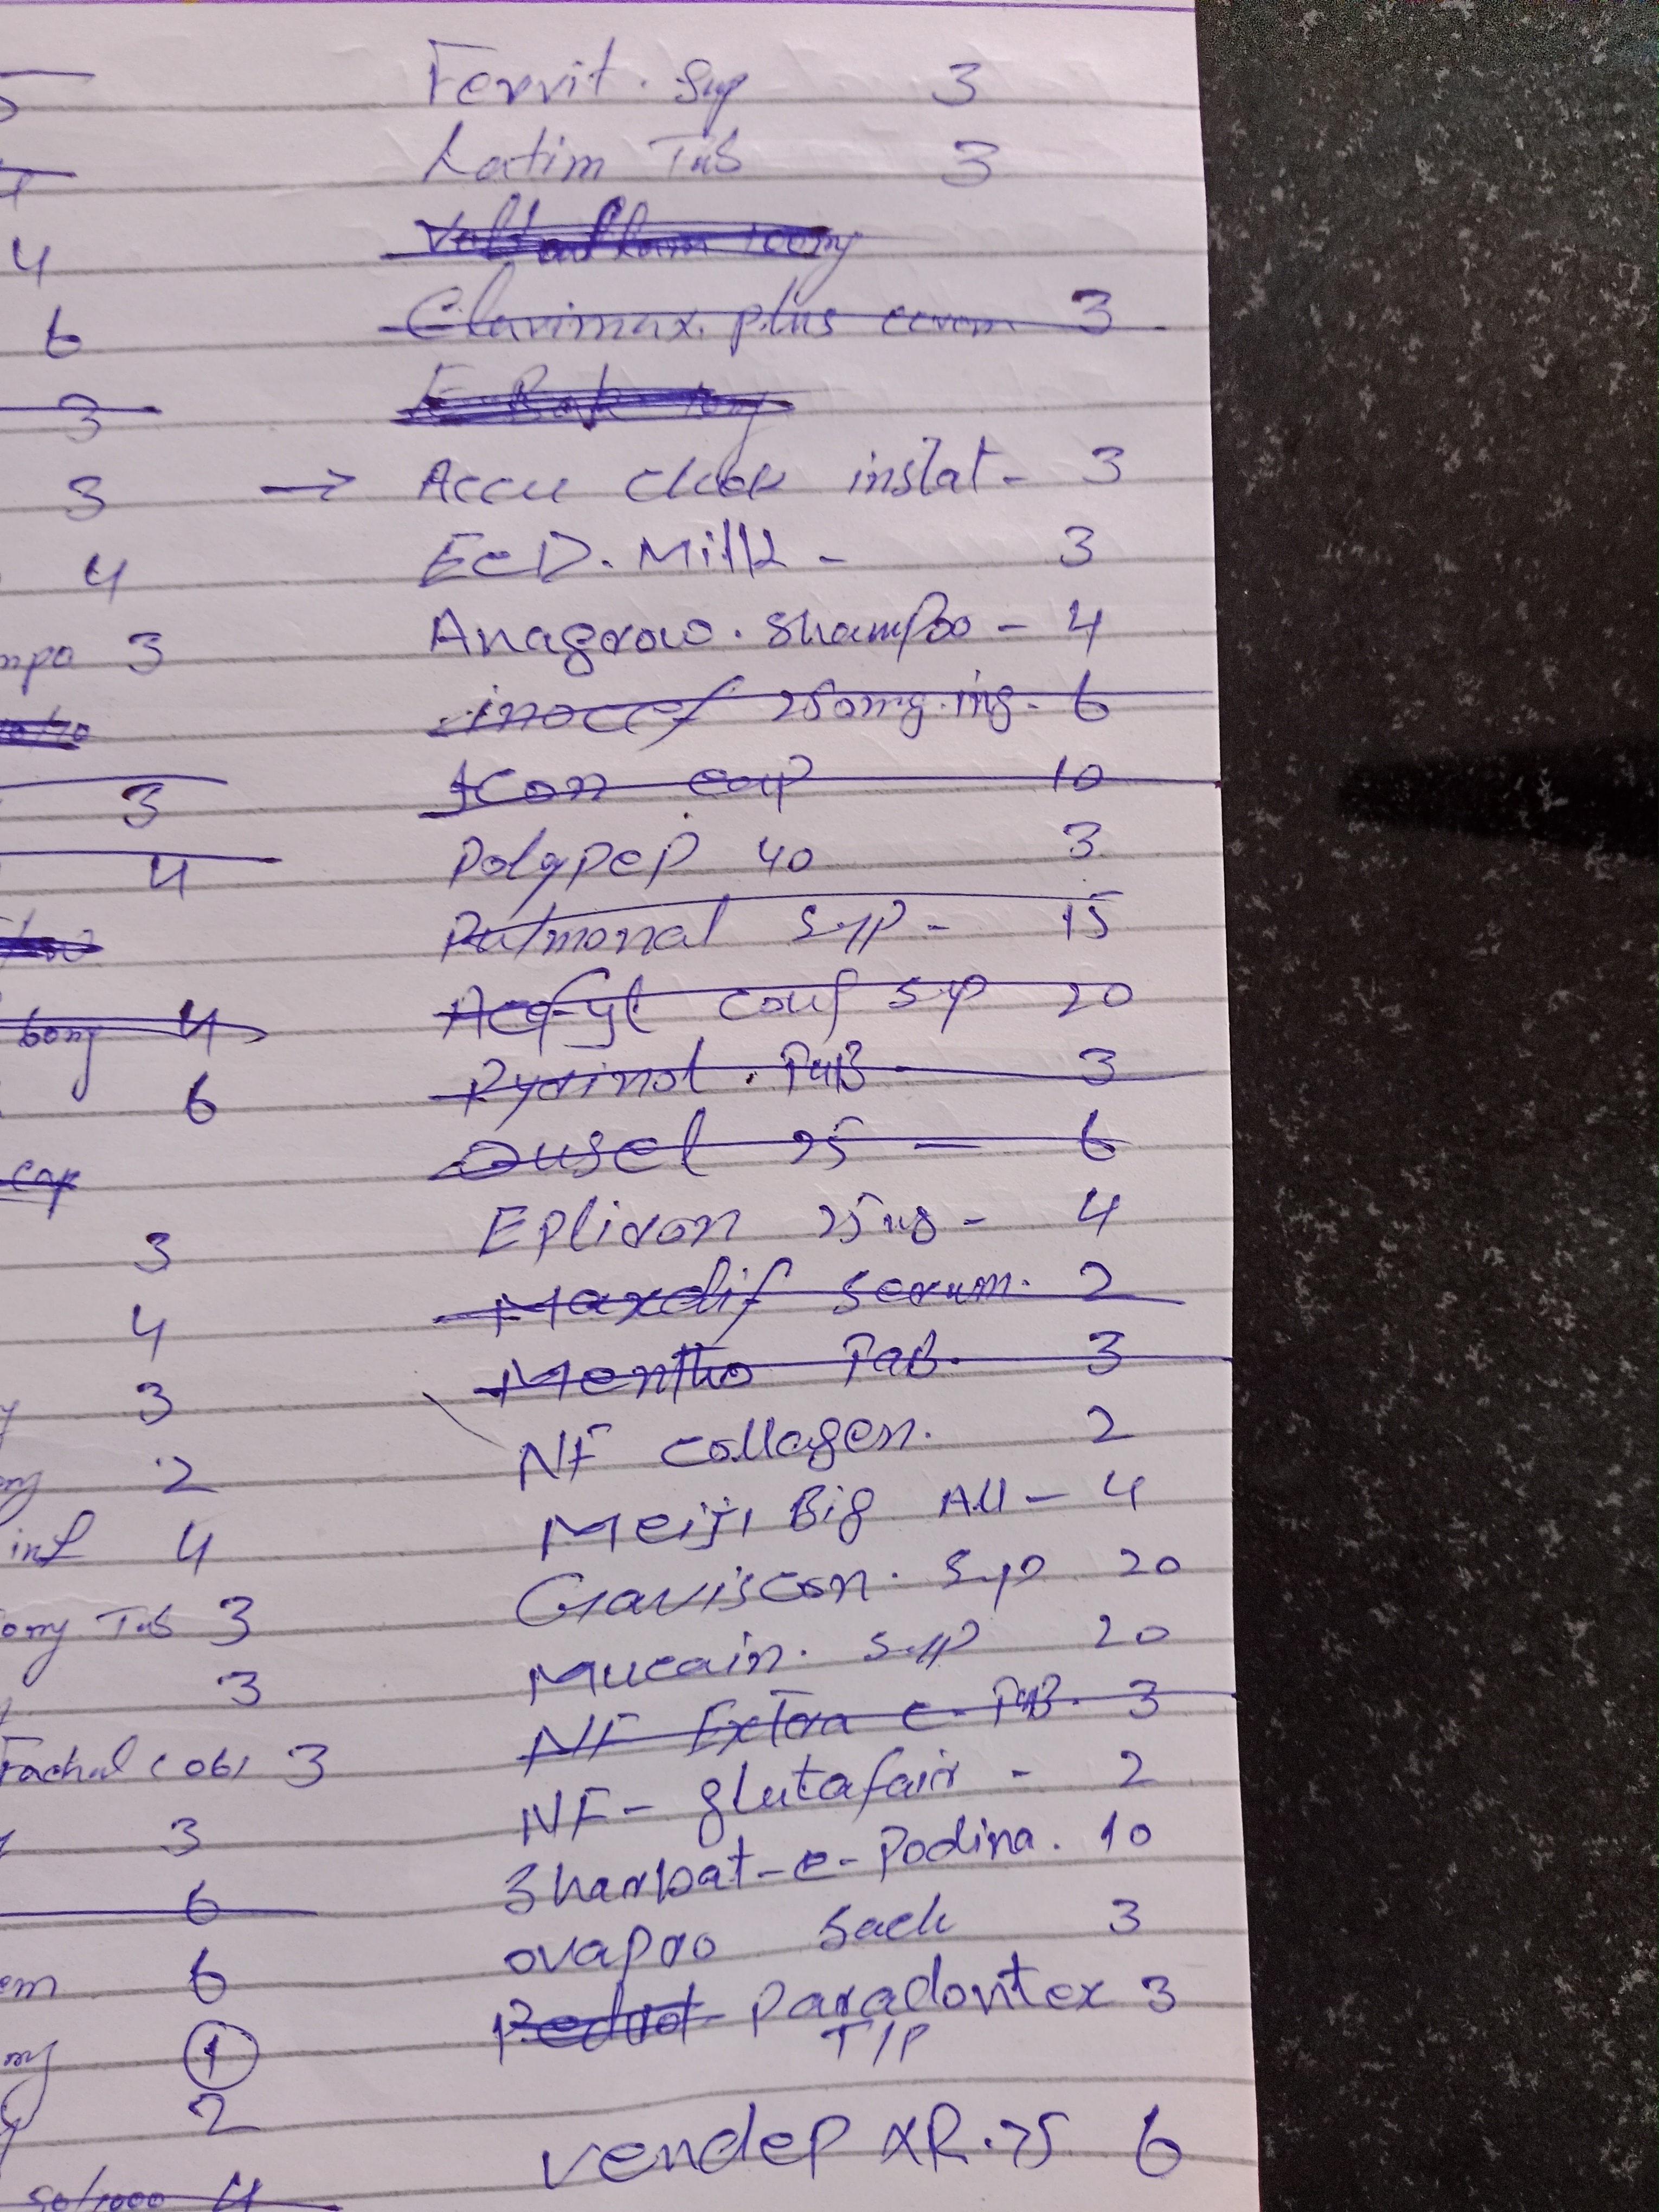 Fervit. Syp 3
Latim Tab 3
4
6 Clavimax. plus cream 3
3
3 → Accu Chek instat - 3
4 EcD. Milk - 3
mpo 3 Anagrow. Shampoo - 4
inocef 250mg. inj. 6
3 Icon cap 10
4 Polypep 40 3
Pulmonal Syp - 15
4 Acefyl couf syp 20
6 Pyrinol. TAB 3
Qusel 25 — 6
cap
3 Epliron 25mg - 4
4 Maxdif Serum. 2
3 Mentho TAB. 3
2 NF collagen. 2
inf 4 Meiji Big All - 4
Tab 3 Gaviscon. Syp 20
3 Mucain. syp 20
Fachal (06) 3 NF Extra C. TAB. 3
3 NF - glutafair - 2
6 Sharbat-e-Podina. 10
6 ovapro Sach 3
1 Paradontex 3
T/P
2
vendep XR.75 6
50/1000 4